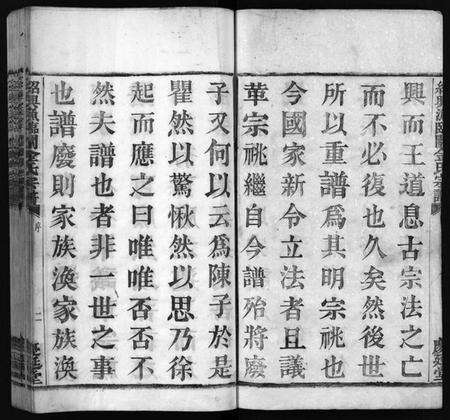 興而王道息古宗法之亡
而不必復也久矣然後世
所以重譜爲其明宗祧也
今國家新令立法者且議
華宗祧繼自今譜殆將廢
子又何以云爲陳子於是
瞿然以驚愀然以思乃徐
起而應之曰唯唯否否不
然夫譜也者非一世之事
也譜廢則家族渙家族渙